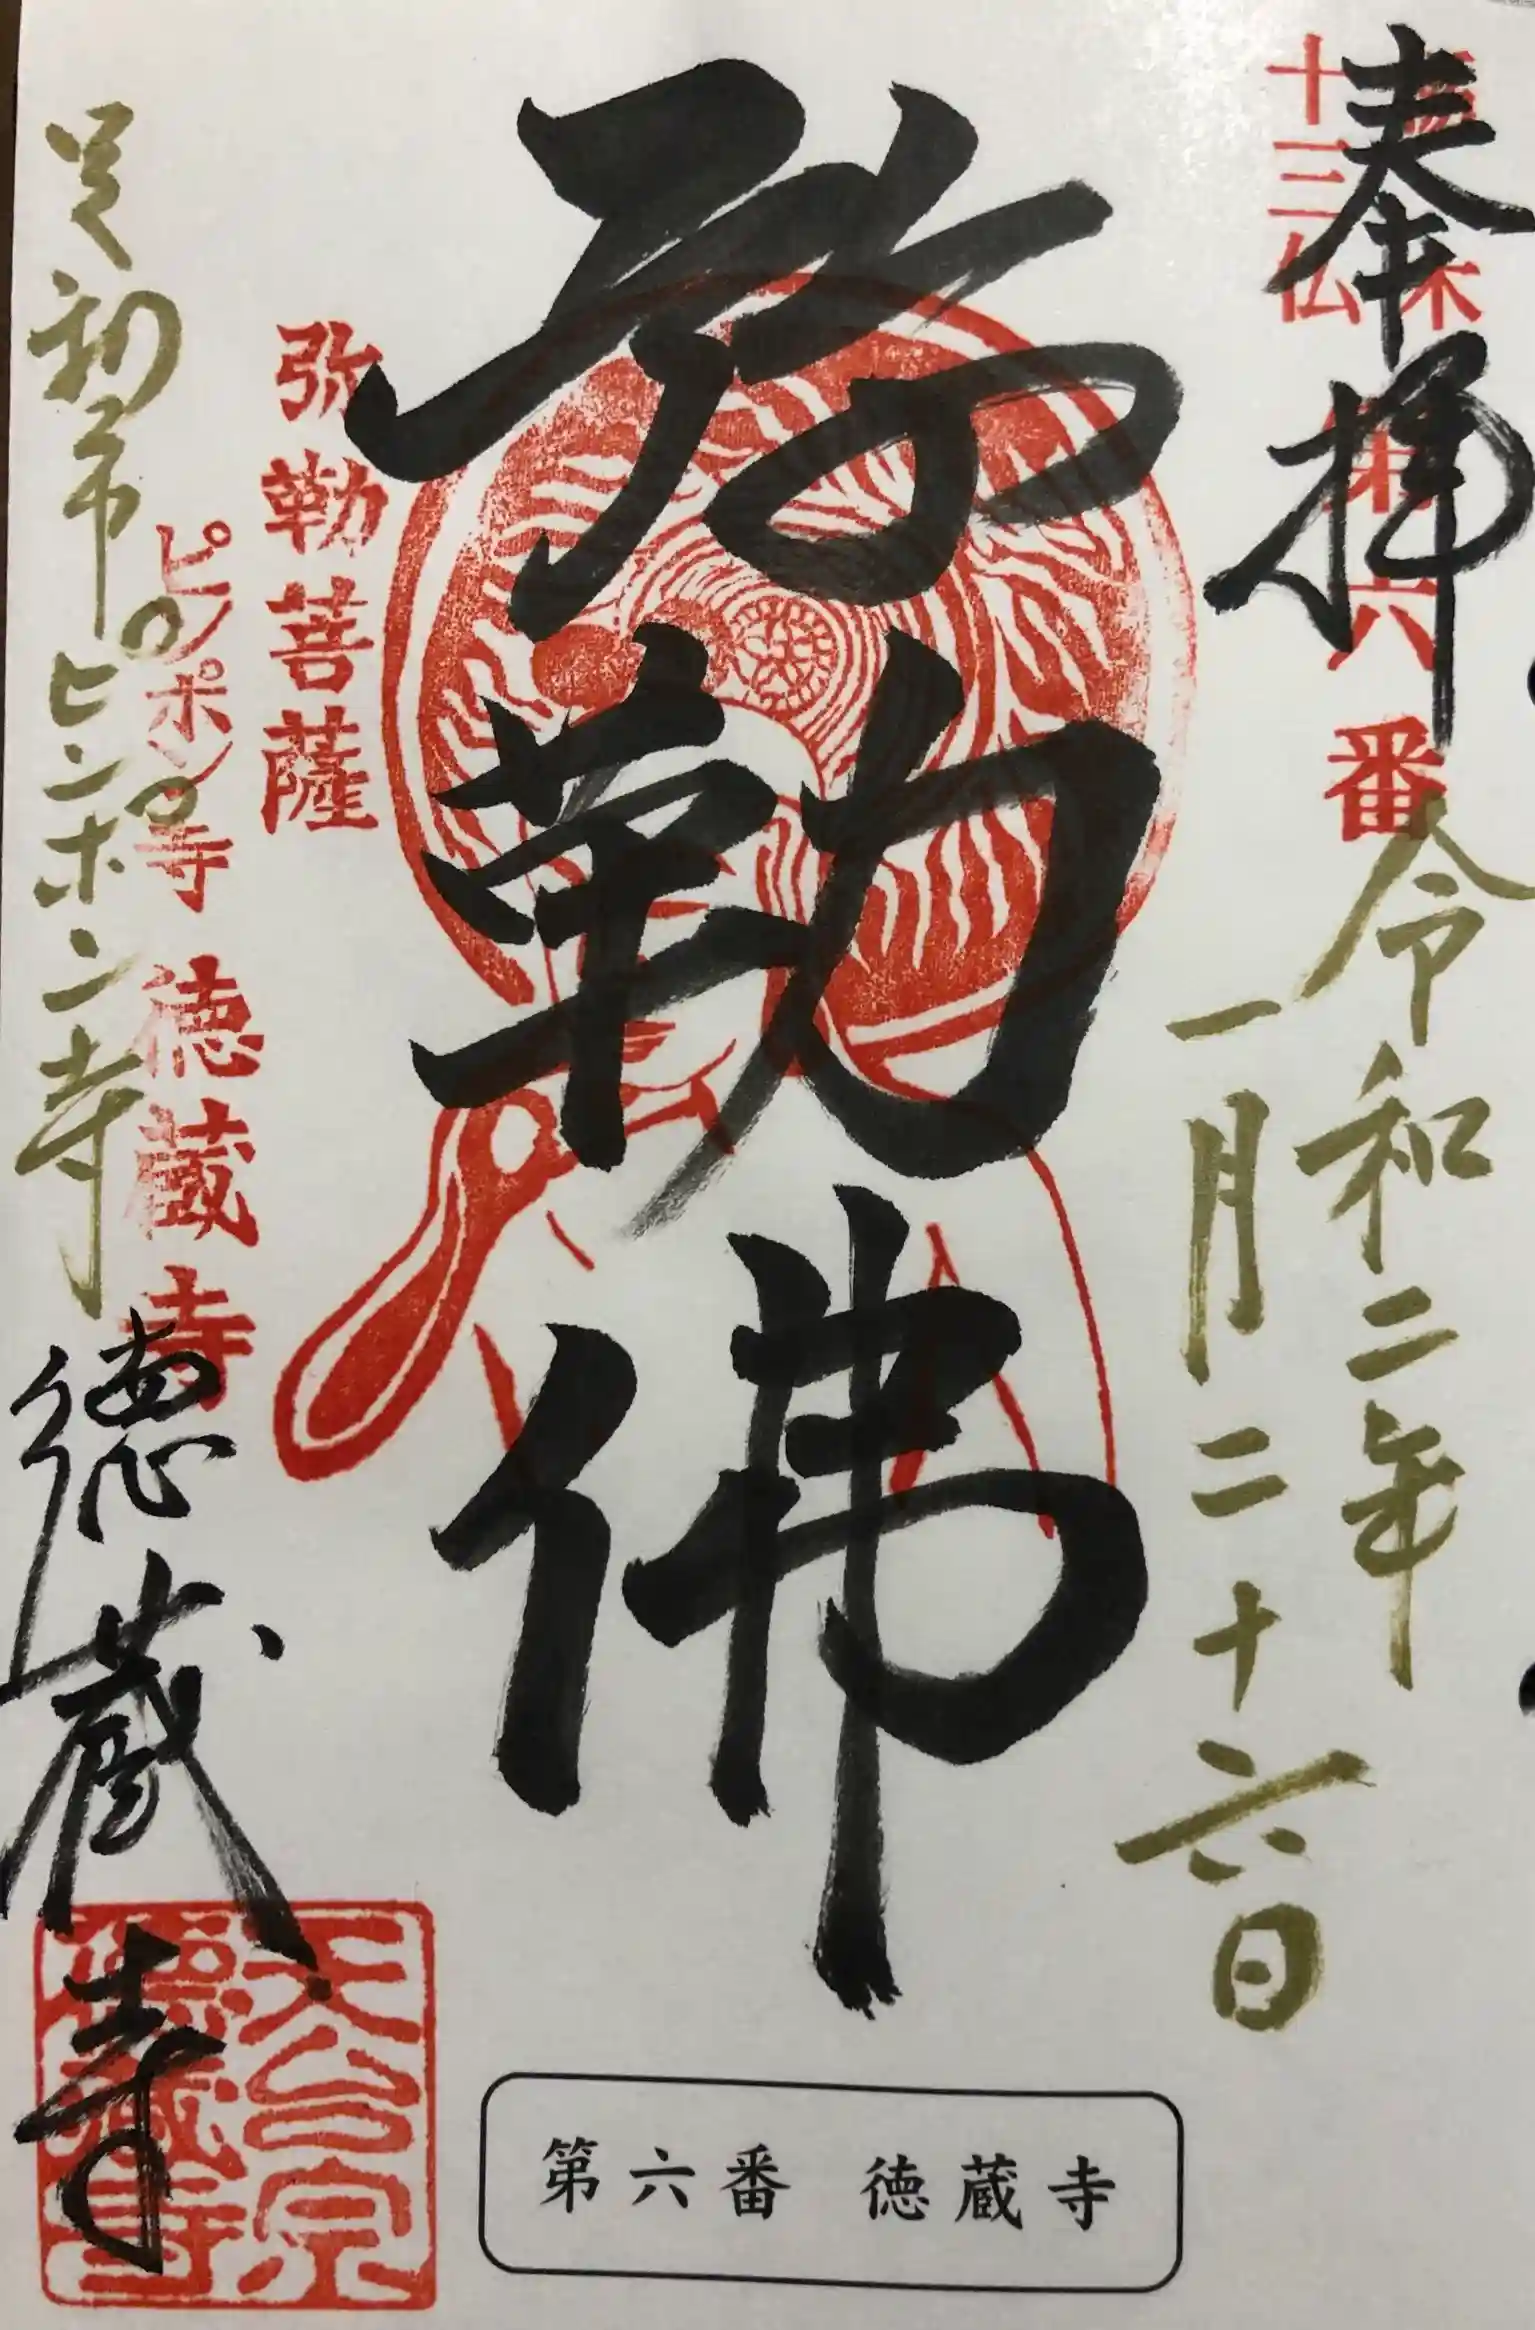 奉拝
十三仏
第六番
令和二年
一月二十六日
弥勒佛
弥勒菩薩
ピンポン寺 徳蔵寺
足利市
ピンポン寺
徳蔵寺
天台宗
徳蔵寺
第六番 徳蔵寺